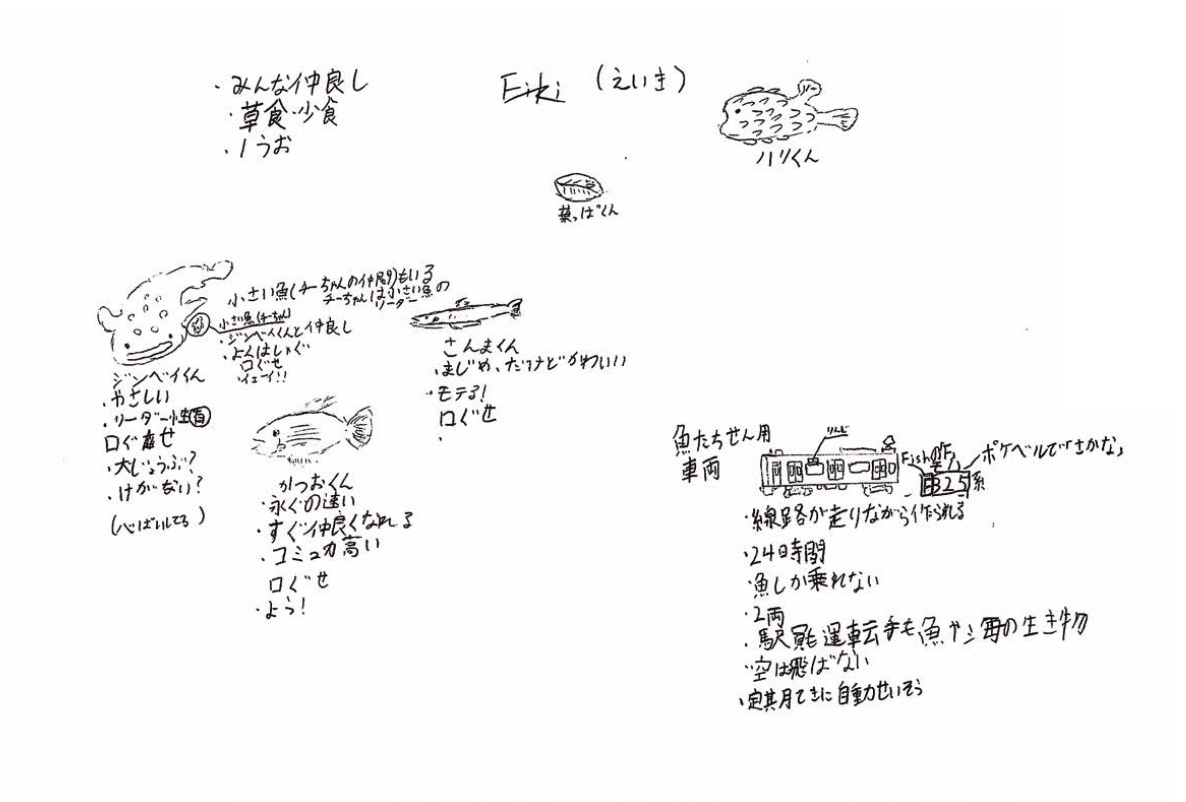 ・みんな仲良し
・草食・少食
・1うお
Eiki (えいき)
ハリくん
葉っぱくん
小さい魚(チーちゃんの仲間)もいる
チーちゃんは小さい魚の
リーダー
小さい魚(チーちゃん)
・ジンベイくんと仲良し
・よくはしゃぐ
口ぐせ
・イェーイ!!
ジンベイくん
・やさしい
・リーダー性百
口ぐせ
・大じょうぶ?
・けがない?
(心ぱいしてる)
さんまくん
・まじめ、だけどかわいい
・モテる!
口ぐせ
・
かつおくん
・永ぐの速い
・すぐ仲良くなれる
・コミュカ高い
口ぐせ
・よう!
魚たちせん用
車両
FishのF
ポケベルで「さかな」
B325系
・線路が走りながら作られる
・24時間
・魚しか乗れない
・2両
・駅員も運転手も魚や海の生き物
・空は飛ばない
・定期てきに自動せいそう